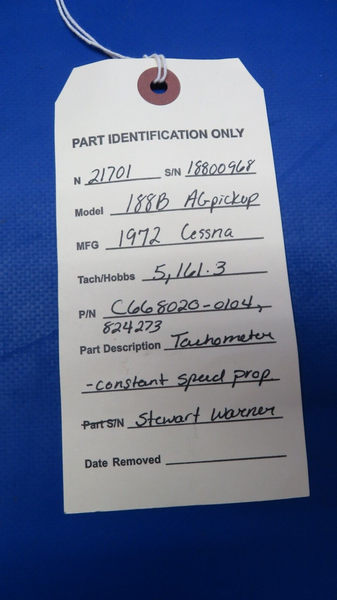 PART IDENTIFICATION ONLY
N 21701 S/N 18800968
Model 188B AGpickup
MFG 1972 Cessna
Tach/Hobbs 5,161.3
P/N C668020-0104,
824273
Part Description Tachometer
-constant speed prop
Part S/N Stewart Warner
Date Removed